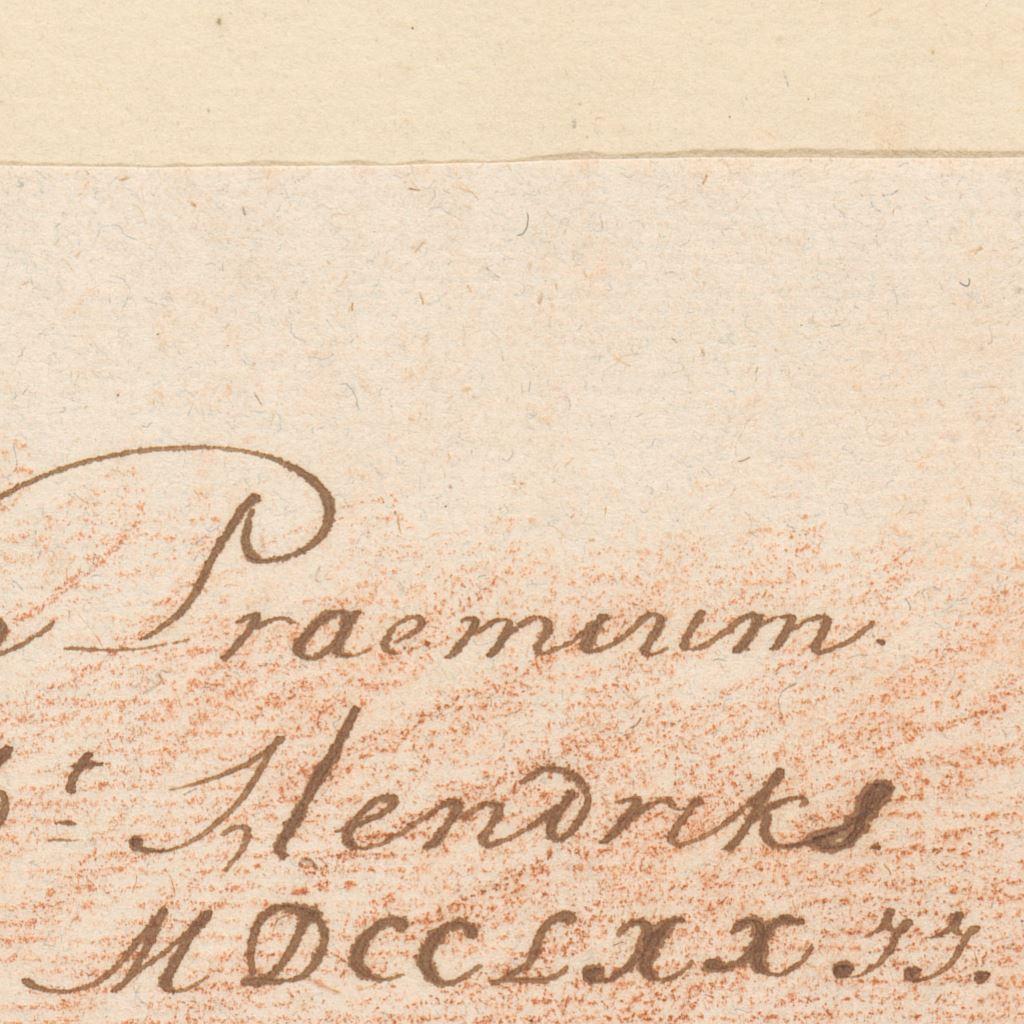 Praemium.
Hendriks.
MDCCLXXII.